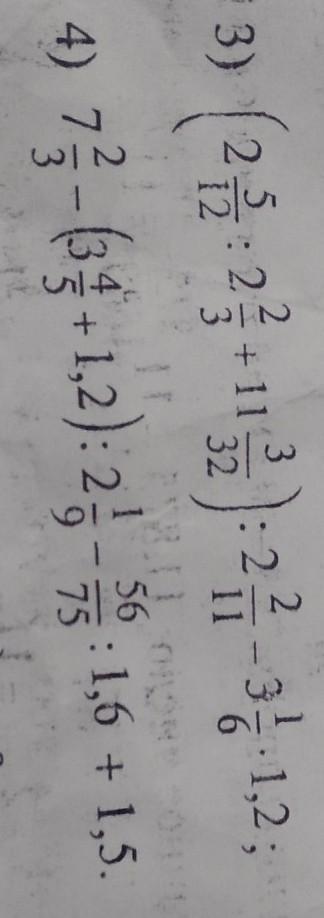 3) (2 5/12 : 2 2/3 + 11 3/32) : 2 2/11 − 3 1/6 · 1,2 ;
4) 7 2/3 − (3 4/5 + 1,2) : 2 1/9 − 56/75 : 1,6 + 1,5.